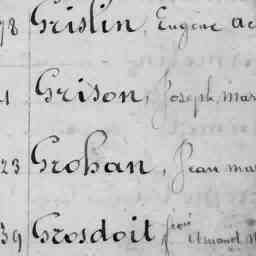 78 Grislin, Eugène ac
1 Grison, Joseph, mar
23 Grohan, Jean mar
39 Grosdoit